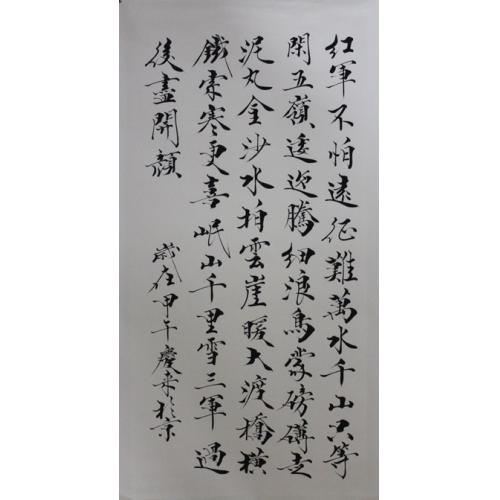 紅軍不怕遠征難萬水千山只等
閑五嶺逶迤騰細浪烏蒙磅礴走
泥丸金沙水拍雲崖暖大渡橋横
鐵索寒更喜岷山千里雪三軍過
後盡開顔
歲在甲午慶來於京